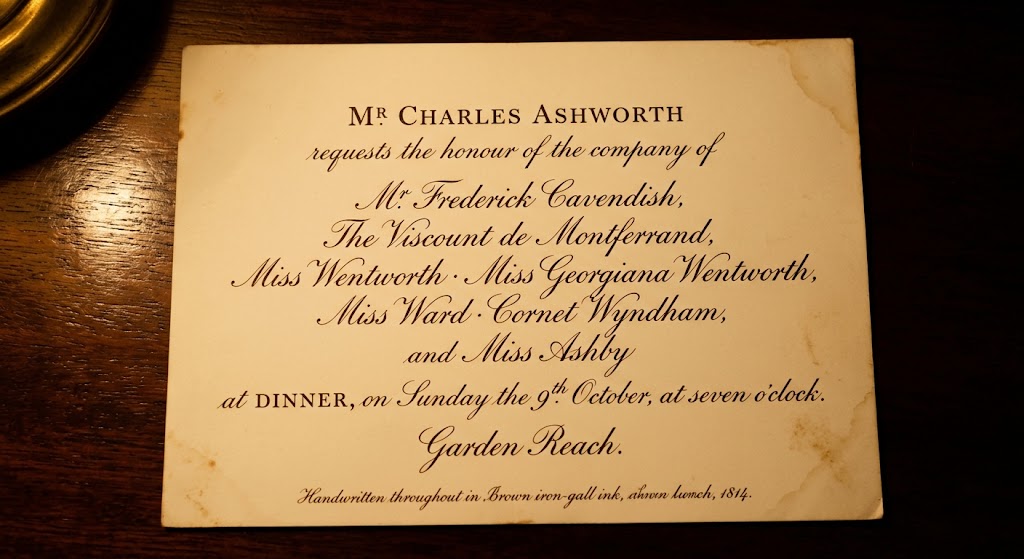 Mr. CHARLES ASHWORTH
requests the honour of the company of
Mr. Frederick Cavendish,
The Viscount de Montferrand,
Miss Wentworth · Miss Georgiana Wentworth,
Miss Ward · Cornet Wyndham,
and Miss Ashby
at DINNER, on Sunday the 9th. October, at seven o'clock.
Garden Reach.
Handwritten throughout in Brown iron-gall ink, 1814.